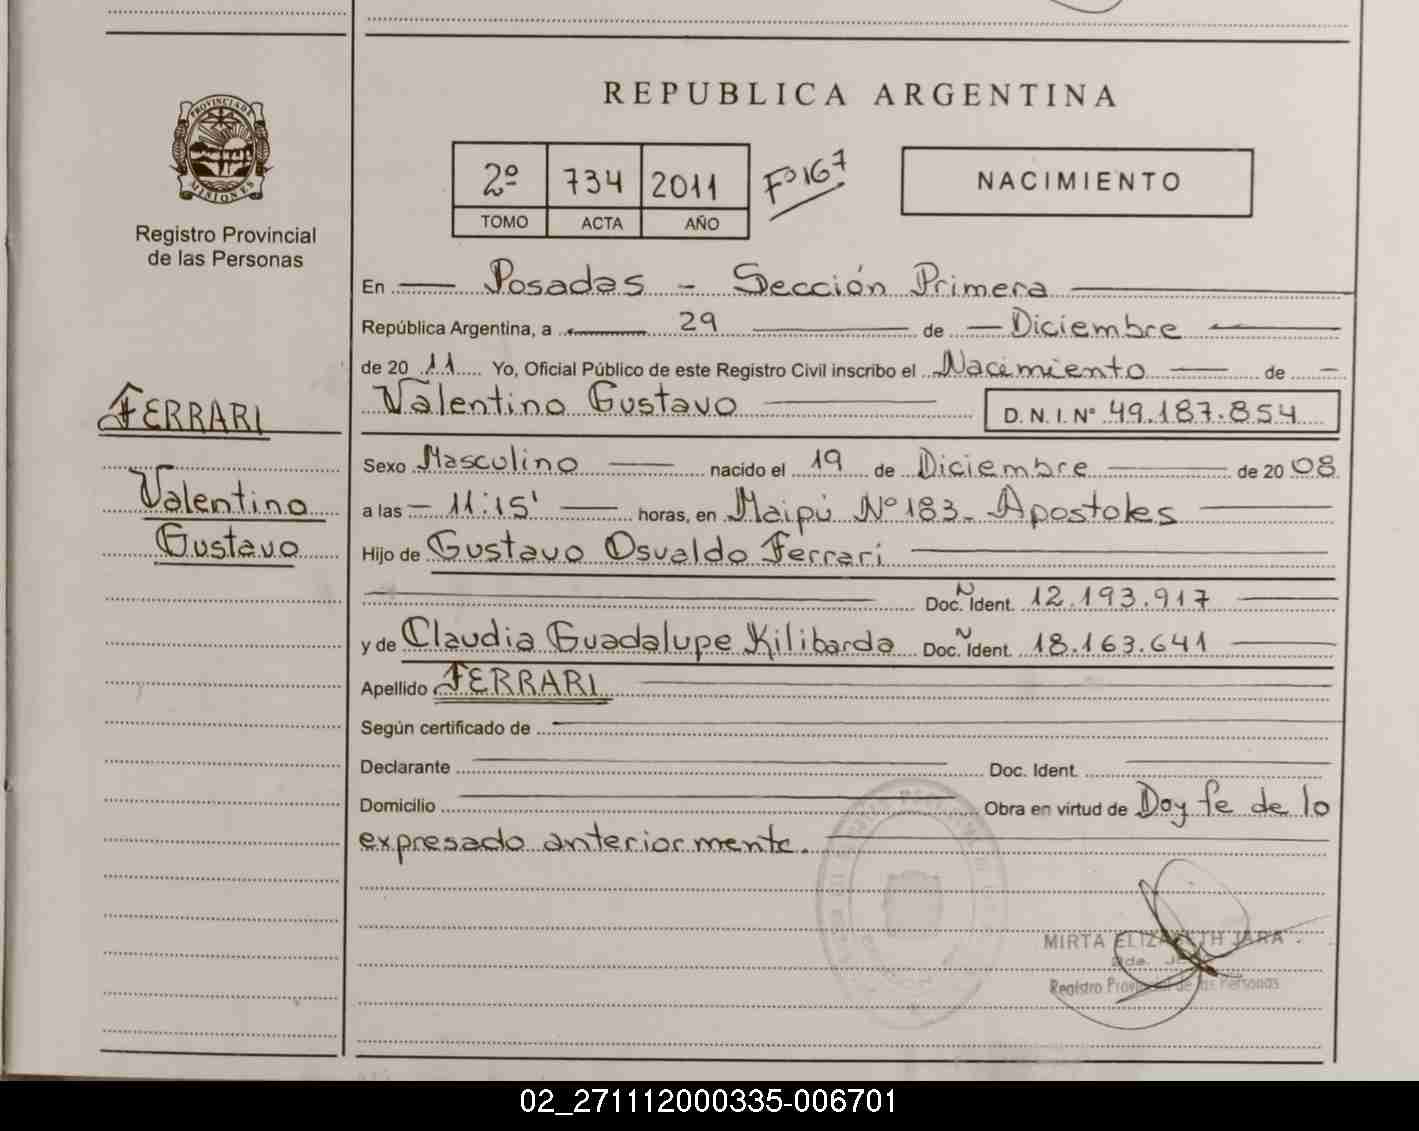 REPUBLICA ARGENTINA
PROVINCIA DE
MISIONES
Registro Provincial
de las Personas
2º 734 2011 Fº167
TOMO ACTA AÑO
NACIMIENTO
En Posadas - Sección Primera
República Argentina, a 29 de Diciembre
de 20 11 Yo, Oficial Público de este Registro Civil inscribo el Nacimiento de
Valentino Gustavo D. N. I. Nº 49.187.854
FERRARI
Valentino
Gustavo
Sexo Masculino nacido el 19 de Diciembre de 20 08
a las 11:15' horas, en Maipú Nº 183 - Apostoles
Hijo de Gustavo Osvaldo Ferrari
Doc. Ident. N 12.193.917
y de Claudia Guadalupe Kilibarda Doc. Ident. N 18.163.641
Apellido FERRARI
Según certificado de
Declarante Doc. Ident.
Domicilio Obra en virtud de Doy fe de lo
expresado anteriormente.
MIRTA ELIZABETH JARA
Registro Provincial de las Personas
02_271112000335-006701